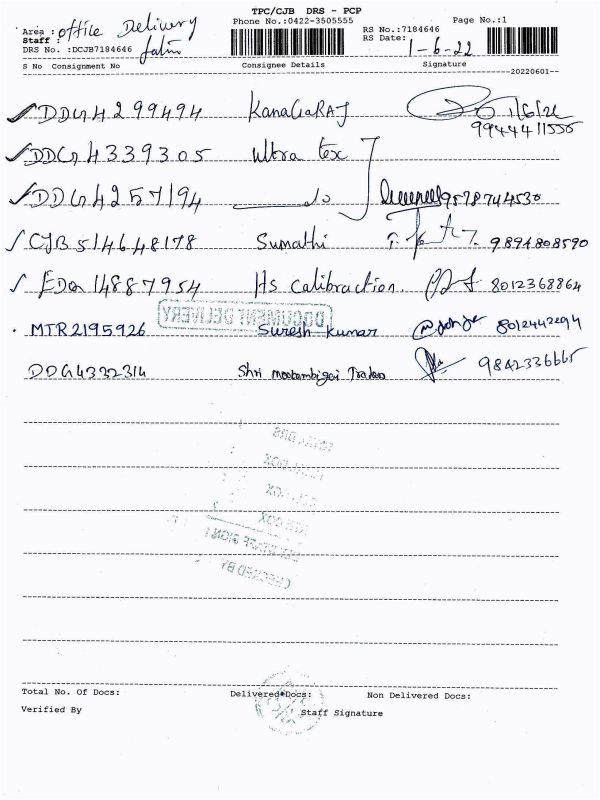 TPC/CJB DRS - PCP
Area : office Delivery Phone No.:0422-3505555 RS No.:7184646 Page No.:1
Staff : RS Date: 1-6-22
DRS No. :DCJB7184646
S No Consignment No Consignee Details Signature
20220601
DDG4299494 KanaGaRAJ 1/6/22
9944411555
DDG4339305 Ultra tex
DDG4257194 do 9578744530
CJB514648178 Sumathi 9894808590
EDQ14887954 Hs calibraction. 8012368864
DOCUMENT DELIVERY
MTR2195926 Suresh kumar 8012442294
DDG4332314 Shri mookambigai Traders 9842336665
CHECKED BY
Total No. Of Docs: Delivered Docs: Non Delivered Docs:
Verified By Staff Signature